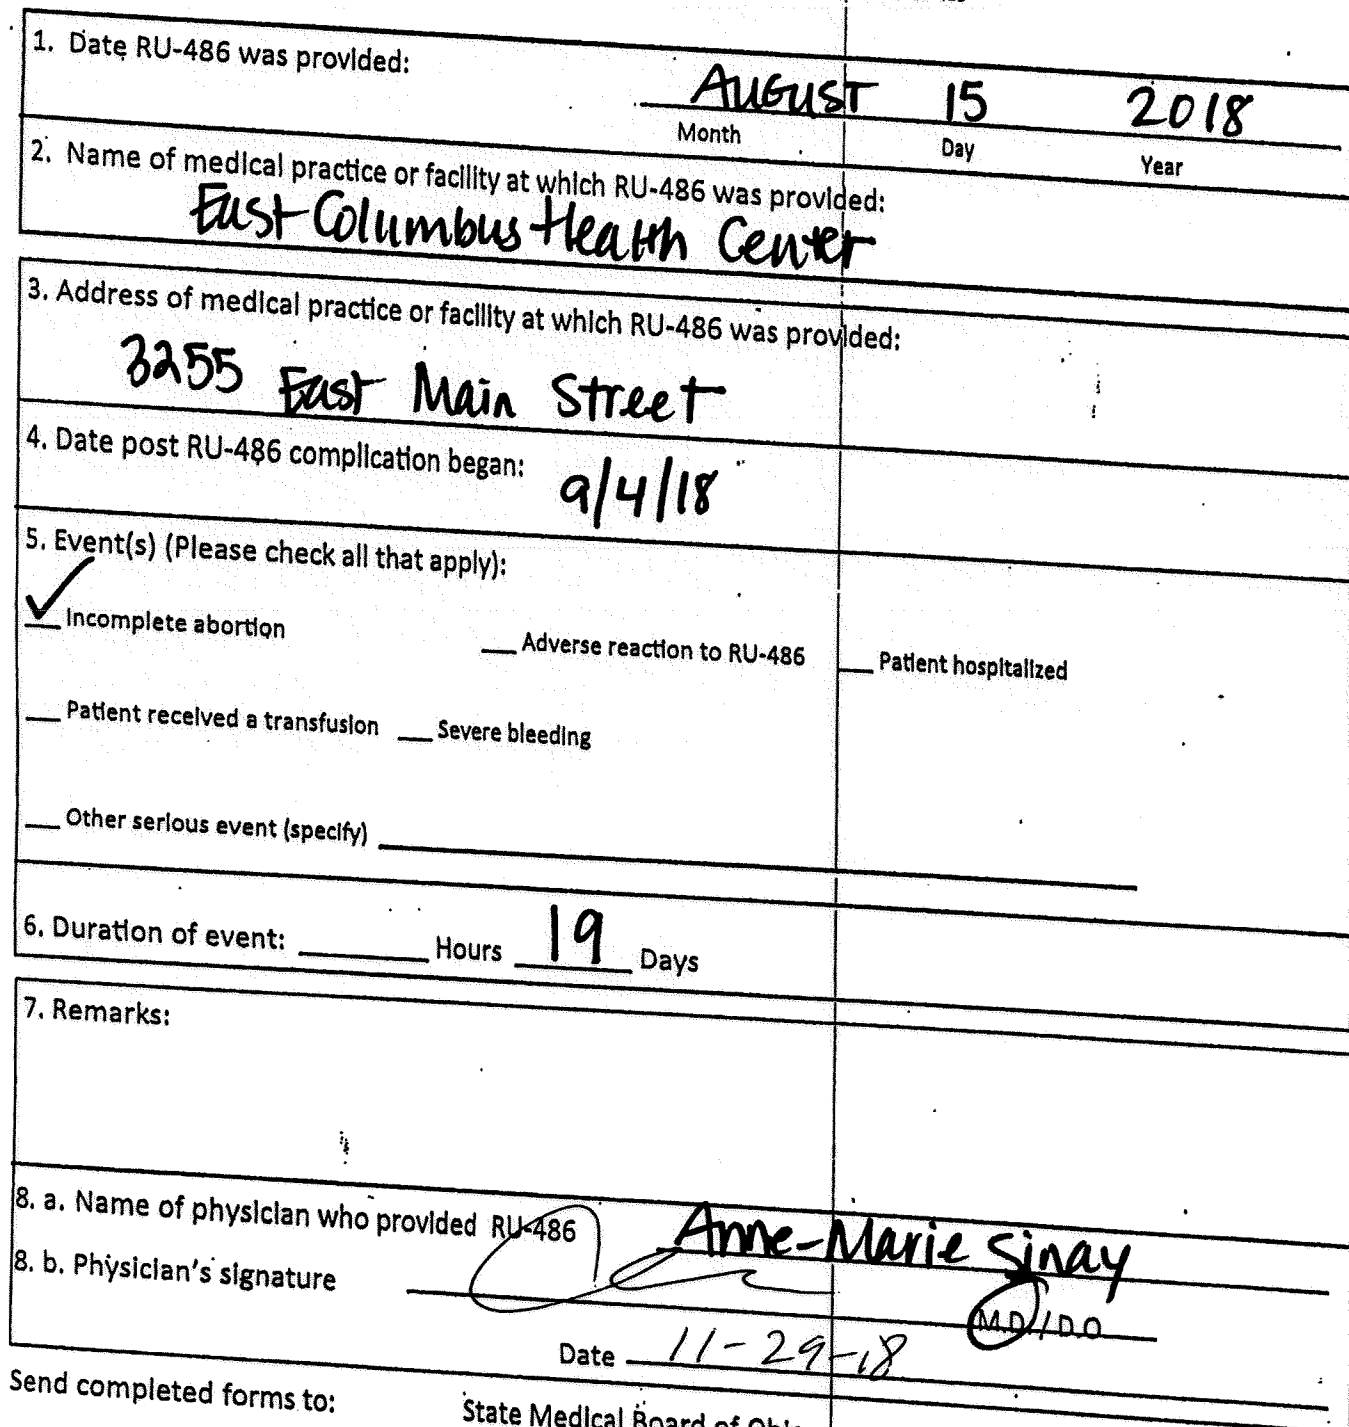 1. Date RU-486 was provided:
AUGUST 15 2018
Month Day Year
2. Name of medical practice or facility at which RU-486 was provided:
East Columbus Health Center
3. Address of medical practice or facility at which RU-486 was provided:
3255 East Main Street
4. Date post RU-486 complication began: 9/4/18
5. Event(s) (Please check all that apply):
✓ Incomplete abortion __ Adverse reaction to RU-486 __ Patient hospitalized
__ Patient received a transfusion __ Severe bleeding
__ Other serious event (specify)
6. Duration of event: ____ Hours 19 Days
7. Remarks:
8. a. Name of physician who provided RU-486 Anne-Marie Sinay
8. b. Physician's signature
M.D./D.O
Date 11-29-18
Send completed forms to: State Medical Board of